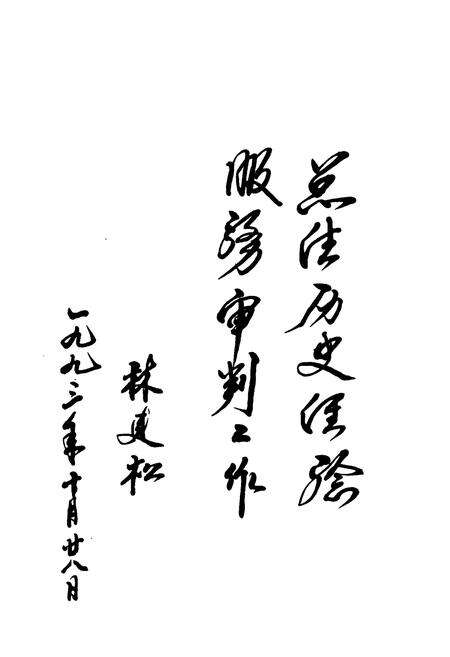 总结历史经验
服务审判工作
林建松
一九九三年十月廿八日